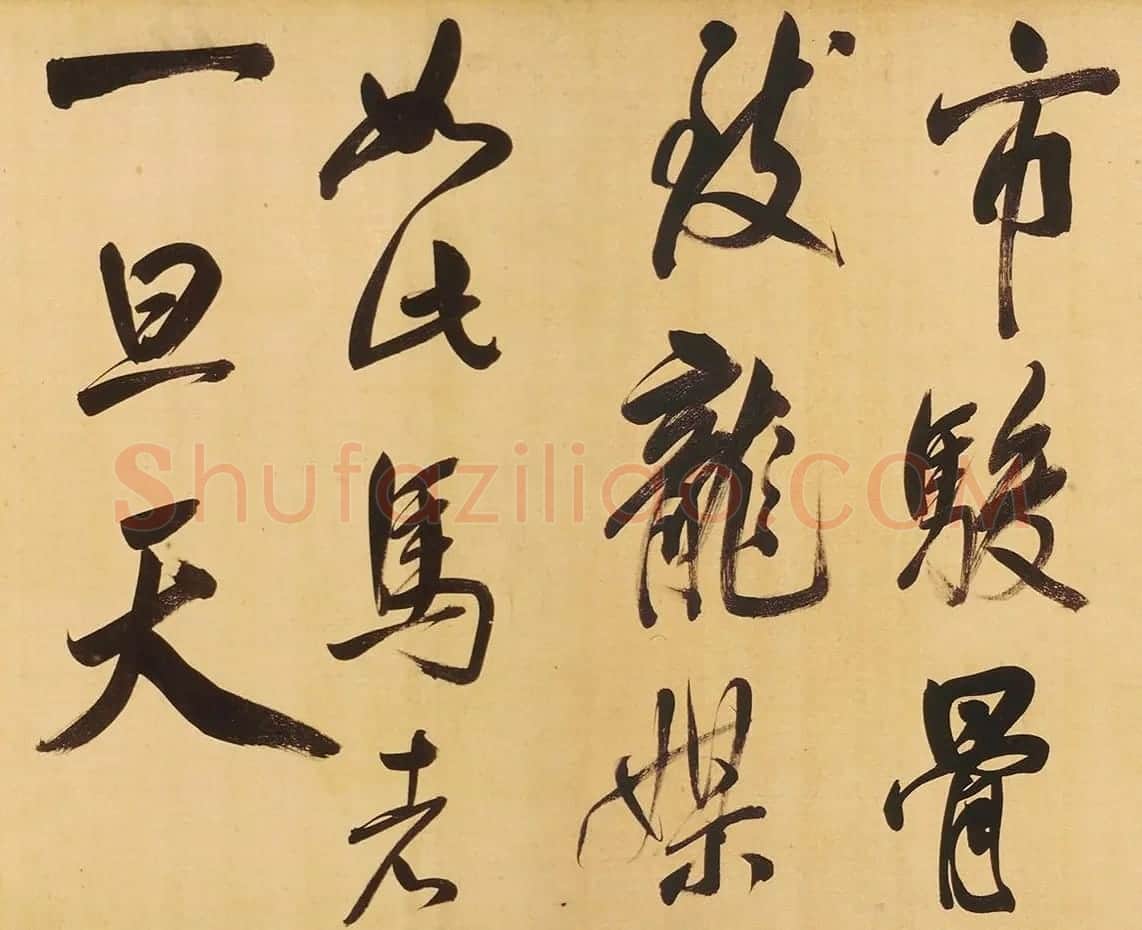 市駿骨
致龍媒
如此馬者
一旦天
Shufaziliao.COM